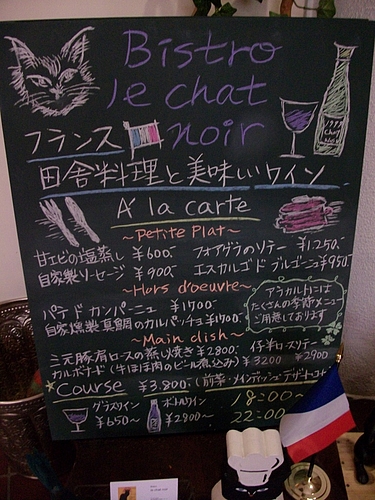 Bistro
le chat
フランス noir
1998
Chat
Noir
田舎料理と美味しいワイン
A la carte
～Petite Plat～
甘エビの塩蒸し ¥600- フォアグラのソテー ¥1,250-
自家製ソーセージ ¥900- エスカルゴ ド ブルゴーニュ ¥950-
～Hors d'oeuvre～
パテ ド カンパーニュ ¥1700-
自家燻製真鯛のカルパッチョ ¥1700-
アラカルトには
たくさんの季節メニュー
ご用意しております
～Main dish～
三元豚肩ロースの蒸し焼き ¥2800 仔羊ロースソテー
カルボナード(牛ほほ肉のビール煮込み) ¥3200 ¥2900
Course ¥3,800-(前菜・メインディッシュ・デザート・コーヒー
グラスワイン ボトルワイン 18:00～
¥650～ ¥2900～ 22:00